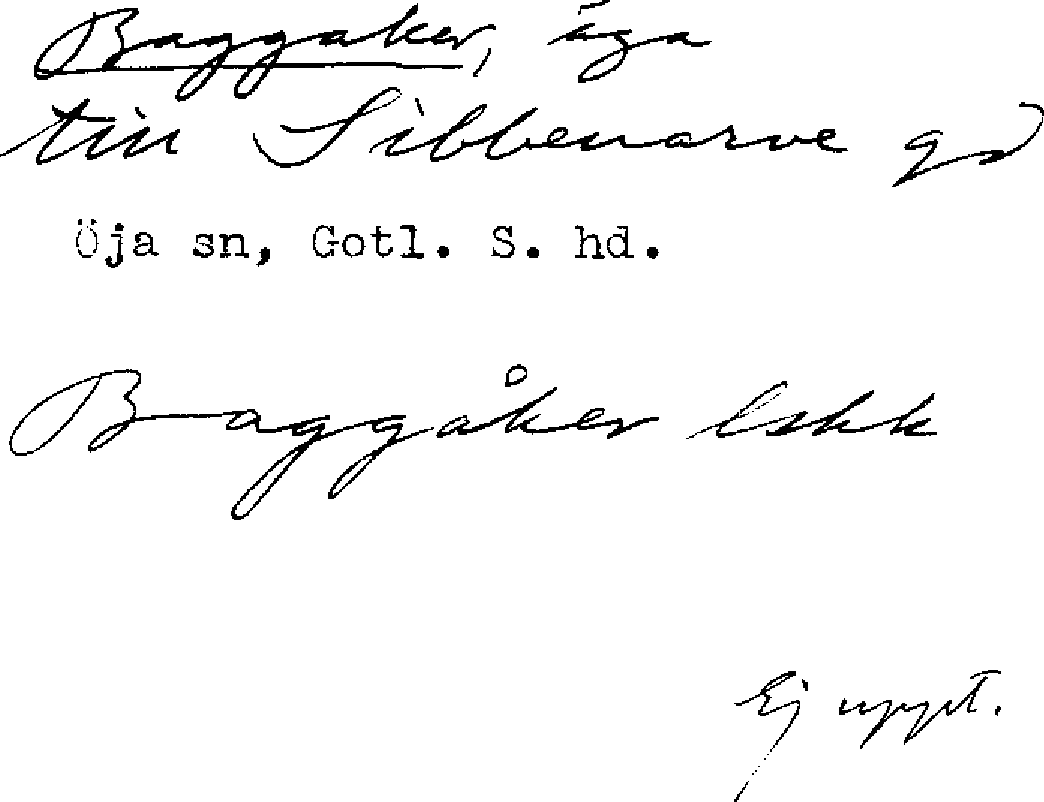 Baggaker, äga
till Sibbenarve gd
Öja sn, Gotl. S. hd.
Baggåker lskk
Ej uppt.